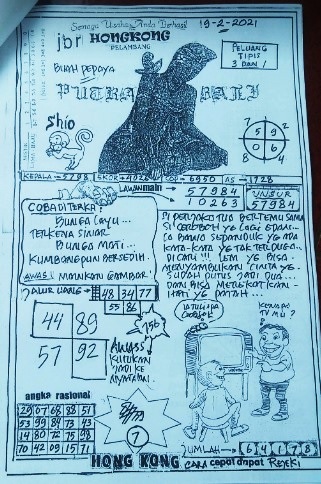 Semoga Usaha Anda Berhasil
19-2-2021
jbr HONGKONG
PALEMBANG
PELUANG
TIPIS
3 DAN 1
BUAH PEPAYA
PUTRA BALI
Shio
5 9
0 6
8 4
KEPALA = 5798 EKOR = 4026 COP = 6950 AS = 1728
LAWAN main
57984
10263
UNSUR
57984
COBA DITERKA!
BUNGA LAYU...
TERKENA SINAR
BUNGA MATI...
KUMBANGPUN BERSEDIH.
AWAS! MAINKAN GAMBAR!
SI PENJAKO TUO BERTEMU SAMA
SI CEROBOH YG LAGI
KATA-KATA YG TAK TERDUGA...
DICARI!!! LEM YG BISA
MENYAMBUNGKAN CINTA YG
SUDAH PUTUS JADI DUA
DAN BISA MEREKATKAN
HATI YG PATAH...
JALUR UANG
48 34 77
55 86
44 89
57 92
756
AWASS
KEJADI KE
NYATAAN
KENAPA
TV MU?
angka rasional
29 07 68 38 51
53 99 84 73 43
14 80 72 75 98
70 42 09 15 71
7
JUMLAH 6 4 1 7 8
HONG KONG CARA cepat dapat REJEKI